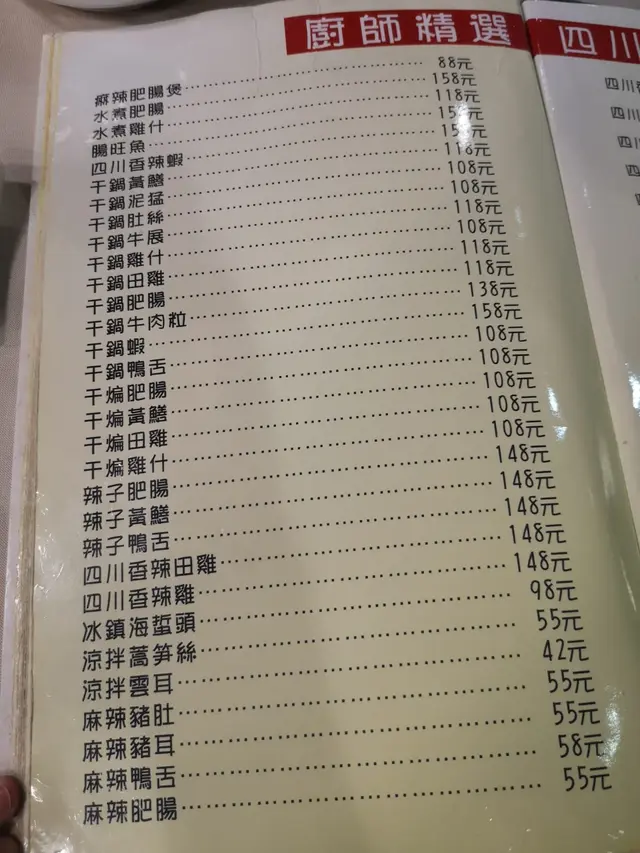 廚師精選
四川
痲辣肥腸煲……88元
水煮肥腸……158元
水煮雞什……118元
腸旺魚……元
四川香辣蝦……元
干鍋黃鱔……118元
干鍋泥猛……108元
干鍋肚絲……108元
干鍋牛展……118元
干鍋雞什……108元
干鍋田雞……118元
干鍋肥腸……118元
干鍋牛肉粒……138元
干鍋蝦……158元
干鍋鴨舌……108元
干煸肥腸……108元
干煸黃鱔……108元
干煸田雞……108元
干煸雞什……108元
辣子肥腸……148元
辣子黃鱔……148元
辣子鴨舌……148元
四川香辣田雞……148元
四川香辣雞……148元
冰鎮海蜇頭……98元
涼拌蒿筍絲……55元
涼拌雲耳……42元
麻辣豬肚……55元
麻辣豬耳……55元
麻辣鴨舌……58元
麻辣肥腸……55元
四川
四川
四川
四